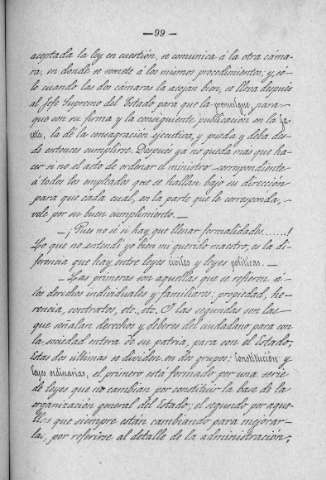 — 99 —
aceptada la ley en cuestión, se comunica á la otra cáma-
ra, en donde se somete á los mismos procedimientos; y, só-
lo cuando las dos cámaras la acojan bien, se lleva después
al Jefe Supremo del Estado para que la promulgue, para
que con su firma y la consiguiente publicación en la Ga-
ceta, la dé la consagración ejecutiva, y pueda y deba des-
de entonces cumplirse. Después ya no queda mas que ha-
cer si no el acto de ordenar el ministro correspondiente
á todos los empleados que se hallan bajo su dirección
para que cada cual, en la parte que le corresponda,
vele por su buen cumplimiento. —
— ¡Pues no si hay que llenar formalidades......!
Lo que no entendí yo bien mi querido maestro, es la di-
ferencia que hay entre leyes civiles y leyes políticas. —
— Las primeras son aquellas que se refieren á
los derechos individuales y familiares: propiedad, he-
rencia, contratos, etc. etc. Y las segundas son las
que señalan derechos y deberes del ciudadano para con
la sociedad entera de su patria, para con el Estado;
Estas dos últimas se dividen en dos grupos: Constitución y
leyes ordinarias, el primero está formado por una serie
de leyes que no cambian por constituir la base de la
organización general del Estado; el segundo por aque-
llas que siempre están cambiando para mejorar-
la, por referirse al detalle de la administración;